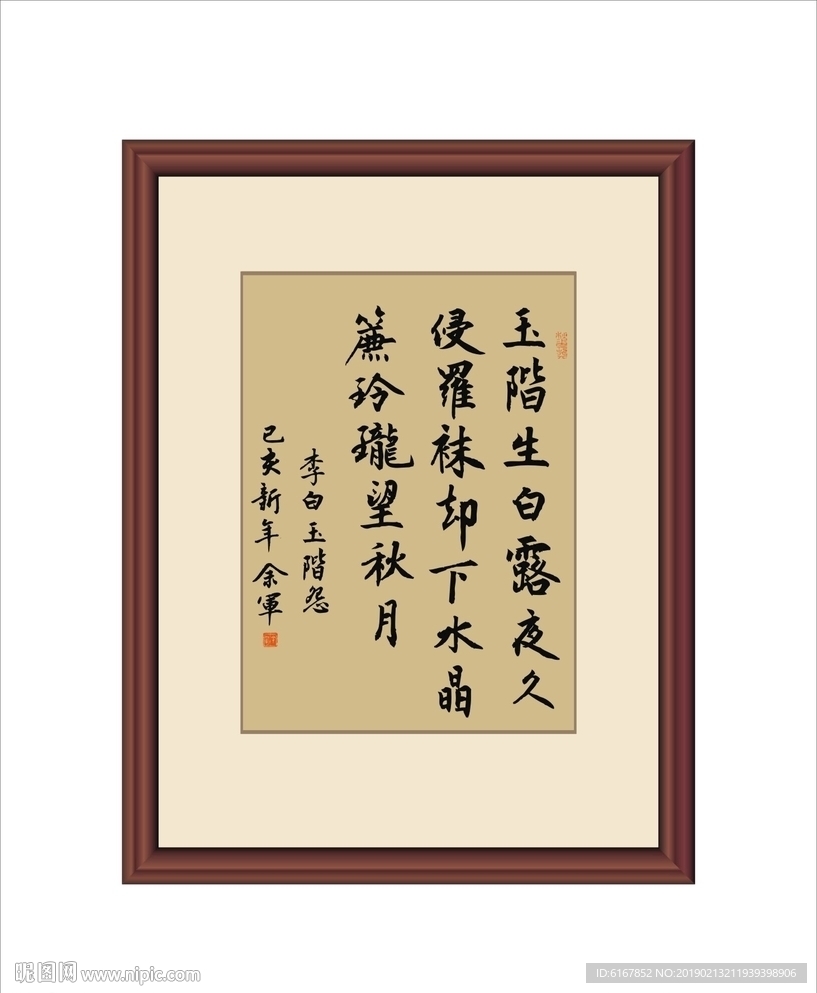 玉階生白露夜久
侵羅袜却下水晶
簾玲瓏望秋月
李白玉階怨
己亥新年余軍
昵图网 www.nipic.com
ID:6167852 NO:20190213211939398906